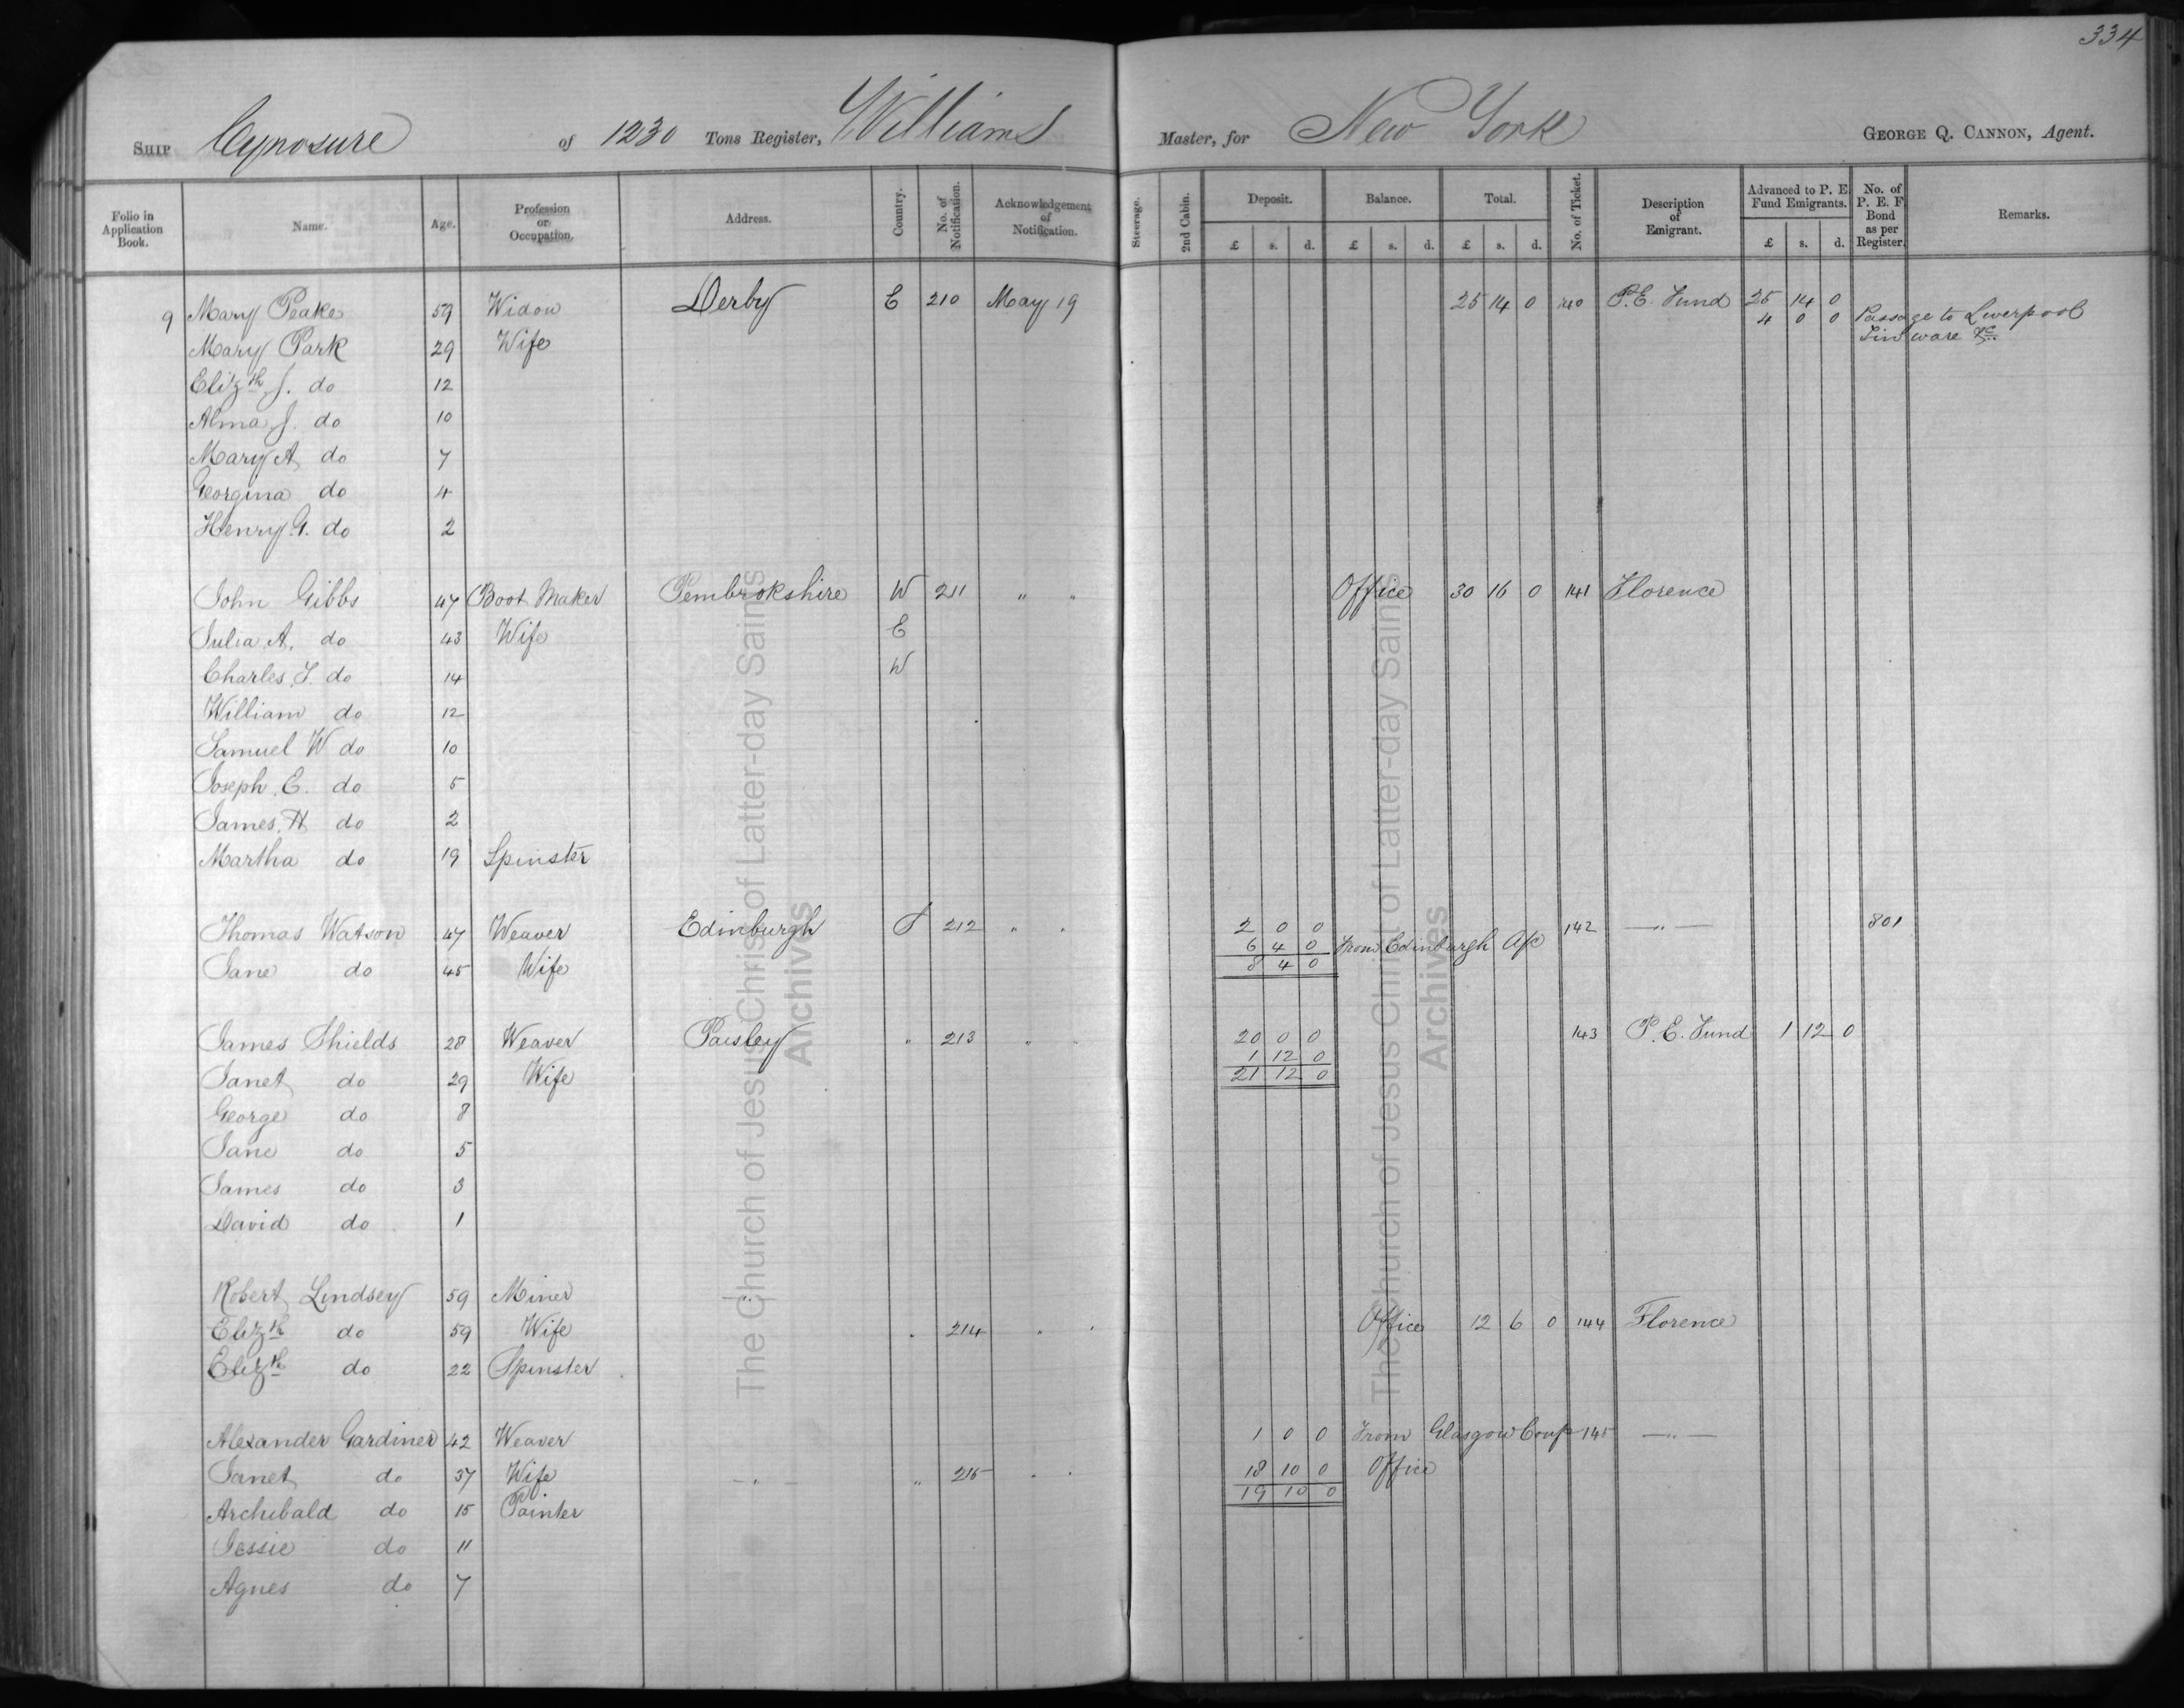 334
SHIP Cynosure of 1230 Tons Register, Williams Master, for New York GEORGE Q. CANNON, Agent.
Folio in Application Book. Name. Age. Profession or Occupation. Address. Country. No. of Notification. Acknowledgement of Notification. Steerage. 2nd Cabin. Deposit. Balance. Total. No. of Ticket. Description of Emigrant. Advanced to P. E. Fund Emigrants. No. of P. E. F. Bond as per Register. Remarks.
£ s. d. £ s. d. £ s. d. £ s. d.
9 Mary Peake 59 Widow Derby E 210 May 19 25 14 0 140 P.E. Fund 25 14 0
4 0 0 Passage to Liverpool
Mary Park 29 Wife Tin ware &c
Elizth J. do 12
Alma J. do 10
Mary A do 7
Georgina do 4
Henry G. do 2
John Gibbs 47 Boot Maker Pembrokshire W 211 " " Office 30 16 0 141 Florence
Julia A. do 43 Wife E
Charles J. do 14 W
William do 12
Samuel W do 10
Joseph E. do 5
James H do 2
Martha do 19 Spinster
Thomas Watson 47 Weaver Edinburgh S 212 " " 2 0 0 142 — " — 801
6 4 0 From Edinburgh A/c
Jane do 45 Wife 8 4 0
James Shields 28 Weaver Paisley " 213 " " 20 0 0 143 P.E. Fund 1 12 0
1 12 0
Janet do 29 Wife 21 12 0
George do 8
Jane do 5
James do 3
David do 1
Robert Lindsey 59 Miner — " —
Elizth do 59 Wife " 214 " " Office 12 6 0 144 Florence
Elizth do 22 Spinster
Alexander Gardiner 42 Weaver 1 0 0 From Glasgow Conf 145 — " —
Janet do 37 Wife — " — " 215 " " 18 10 0 Office
19 10 0
Archibald do 15 Painter
Jessie do 11
Agnes do 7
The Church of Jesus Christ of Latter-day Saints
Archives
The Church of Jesus Christ of Latter-day Saints
Archives